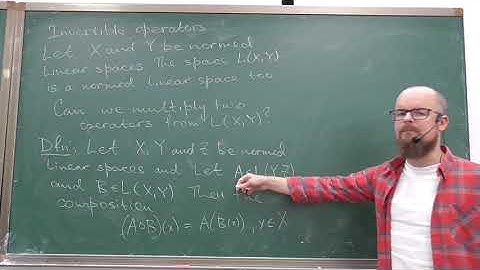 Invertible operators
Let X and Y be normed
linear spaces The space L(X,Y)
is a normed linear space too
Can we multiply two
operators from L(X,Y)?
Dfn: Let X, Y and Z be normed
linear spaces and Let A L(Y,Z)
and B∈L(X,Y) Then the
composition
(A∘B)(x) = A(B(x)), x∈X